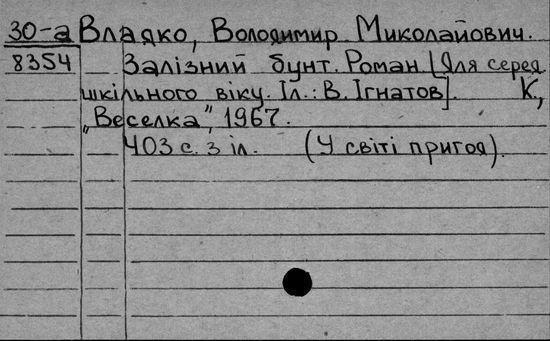 30-а Владко, Володимир Миколайович.
8354 Залізний бунт. Роман. [Для серед.
шкільного віку. Іл.: В. Ігнатов] К.,
„Веселка", 1967.
403 с. з іл. (У світі пригод).